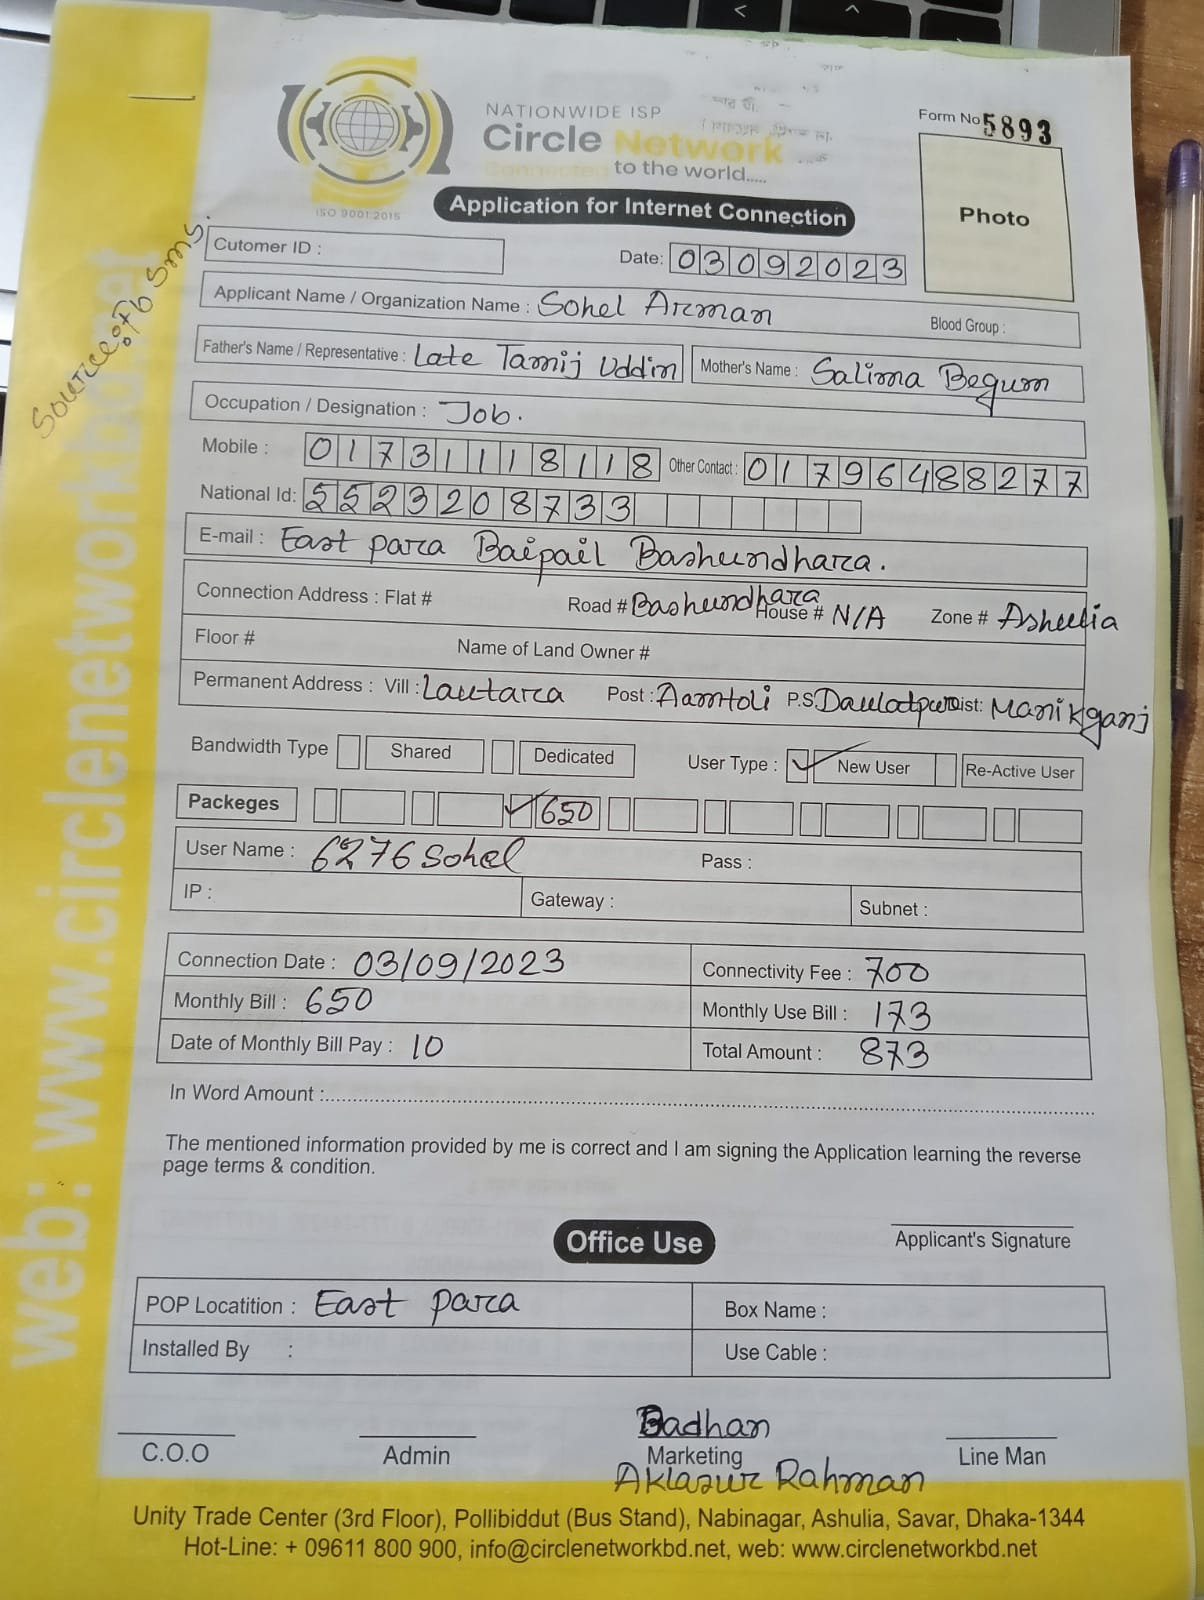 NATIONWIDE ISP
Circle Network
Connected to the world.....
ISO 9001:2015
Form No 5893
Photo
Application for Internet Connection
Source: Fb Sms.
Cutomer ID :
Date: 03092023
Applicant Name / Organization Name : Sohel Arman
Blood Group :
Father's Name / Representative : Late Tamij Uddin
Mother's Name : Salima Begum
Occupation / Designation : Job.
Mobile : 01731118118 Other Contact : 01796488277
National Id: 5523208733
E-mail : East para Baipail Bashundhara.
Connection Address : Flat # Road # Bashundhara House # N/A Zone # Ashulia
Floor # Name of Land Owner #
Permanent Address : Vill : Lautara Post : Aamtoli P.S. Daulatpur Dist: Manikganj
Bandwidth Type Shared Dedicated User Type : ✓ New User Re-Active User
Packeges ✓ 650
User Name : 6276 Sohel Pass :
IP : Gateway : Subnet :
Connection Date : 03/09/2023 Connectivity Fee : 700
Monthly Bill : 650 Monthly Use Bill : 173
Date of Monthly Bill Pay : 10 Total Amount : 873
In Word Amount :
The mentioned information provided by me is correct and I am signing the Application learning the reverse
page terms & condition.
Applicant's Signature
Office Use
POP Locatition : East para Box Name :
Installed By : Use Cable :
Badhan
C.O.O Admin Marketing Line Man
Aklasur Rahman
Unity Trade Center (3rd Floor), Pollibiddut (Bus Stand), Nabinagar, Ashulia, Savar, Dhaka-1344
Hot-Line: + 09611 800 900, info@circlenetworkbd.net, web: www.circlenetworkbd.net
web: www.circlenetworkbd.net